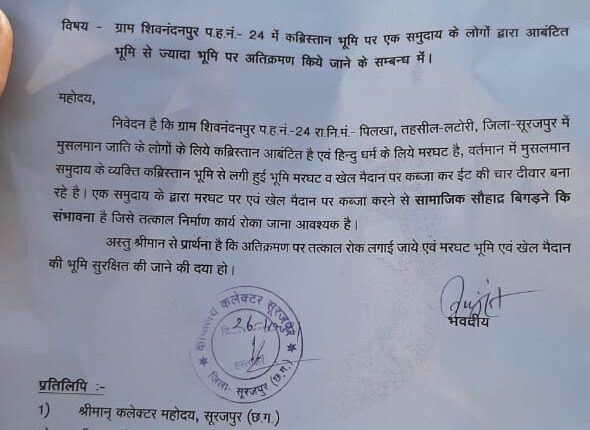 विषय - ग्राम शिवनंदनपुर प.ह.नं.- 24 में कब्रिस्तान भूमि पर एक समुदाय के लोगों द्वारा आबंटित
भूमि से ज्यादा भूमि पर अतिक्रमण किये जाने के सम्बन्ध में।
महोदय,
निवेदन है कि ग्राम शिवनंदनपुर प.ह.नं.-24 रा.नि.मं.- पिलखा, तहसील-लटोरी, जिला-सूरजपुर में
मुसलमान जाति के लोगों के लिये कब्रिस्तान आबंटित है एवं हिन्दु धर्म के लिये मरघट है, वर्तमान में मुसलमान
समुदाय के व्यक्ति कब्रिस्तान भूमि से लगी हुई भूमि मरघट व खेल मैदान पर कब्जा कर ईट की चार दीवार बना
रहे है। एक समुदाय के द्वारा मरघट पर एवं खेल मैदान पर कब्जा करने से सामाजिक सौहाद्र बिगड़ने कि
संभावना है जिसे तत्काल निर्माण कार्य रोका जाना आवश्यक है।
अस्तु श्रीमान से प्रार्थना है कि अतिक्रमण पर तत्काल रोक लगाई जाये एवं मरघट भूमि एवं खेल मैदान
की भूमि सुरक्षित की जाने की दया हो।
कार्यालय कलेक्टर सूरजपुर
जिला- सूरजपुर (छ.ग.)
भवदीय
प्रतिलिपि :-
1) श्रीमान् कलेक्टर महोदय, सूरजपुर (छ.ग.)